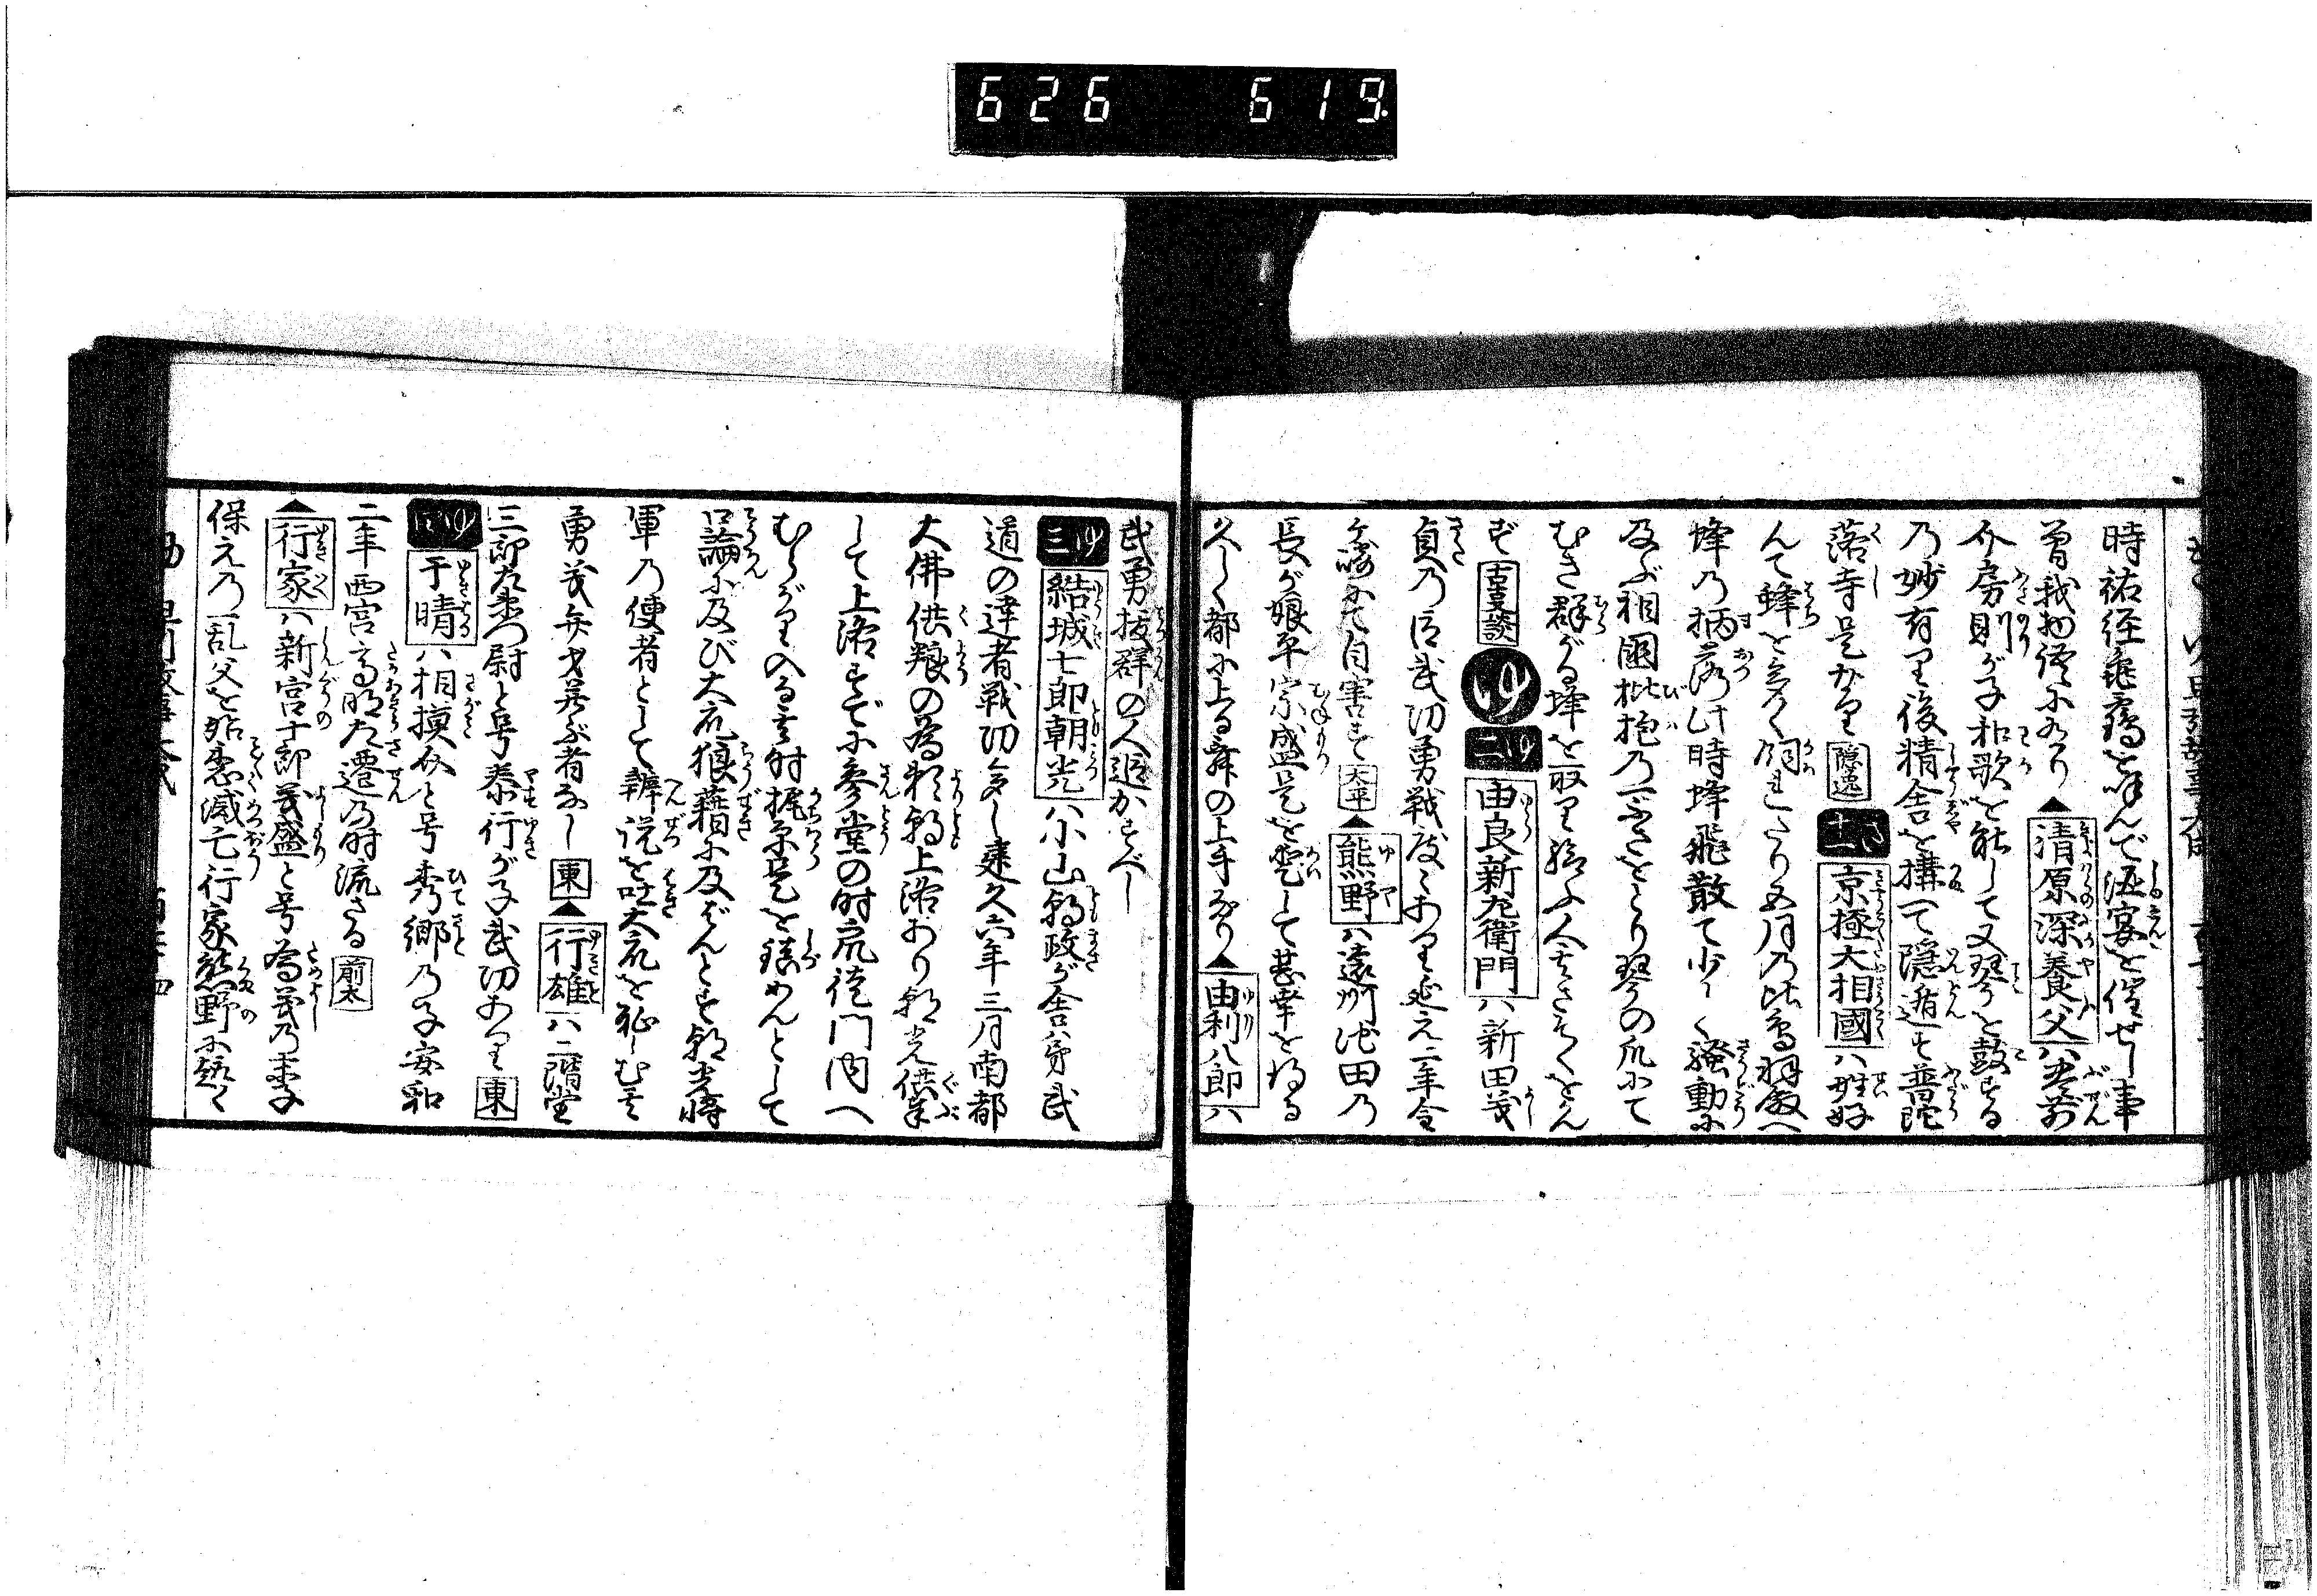 626 619
時祐経亀鶴を呼んで酒宴を催せし事
曽我物語にみへたり▲清原深養父ハ豊前
介房則が子和歌を能して又琴を鼓する
の妙有り後精舎を構て隠遁す普陀
落寺是なり 隠逸 き十一 京極大相國ハ性好
んで蜂を多く飼れたり五月の比鳥羽殿へ
蜂の栖落け時蜂飛散て少しく騒動に
及ぶ相國枇杷の一ふさをとり琴の爪にて
むき群がる蜂を取り給ふ人々さそくをかん
ず 喜談 ゆ ゆ二 由良新左衛門ハ新田義
貞の臣武功勇戦度々あり延元二年金
ヶ崎にて自害す 太平 ▲熊野ハ遠州池田の
長が娘平宗盛是を愛して甚幸を得る
久しく都に上る舞の上手なり▲由利八郎ハ
武勇抜群の人逗かすべし
ゆ三 結城七郎朝光ハ小山朝政が舎弟武
道の達者戦功多し建久六年三月南都
大佛供粮の為頼朝上洛あり朝光供奉
して上洛すでに参堂の時衆徒門内へ
むらがり入る其時梶原是を鎮めんとして
口論に及び大衆狼藉に及ばんとす朝光将
軍の使者として辯説を吐大衆を征しむ其
勇義弁才並ぶ者なし 東 ▲行雄ハ二階堂
三郎左衛門尉と号泰行が子武功あり 東
ゆ四 千晴ハ相摸介と号秀郷の子安和
二年西宮高明左遷の時流さる 前太
▲行家ハ新宮十郎義盛と号為義の季子
保元の一乱父を始悉滅亡行家熊野に趣く